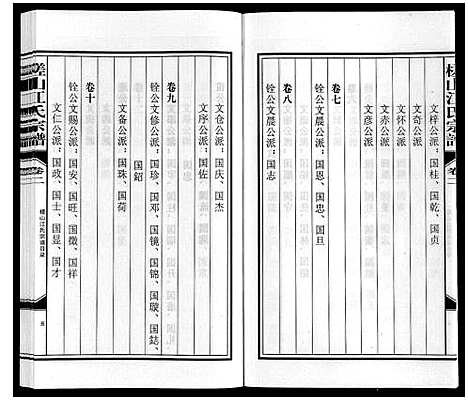 槎山江氏宗谱
卷二
文梓公派：国桂、国乾、国贞
文奇公派：
文怀公派：
文赤公派：
文彦公派：
卷七
铨公文晨公派：国恩、国忠、国旦
卷八
铨公文晨公派：国志
文仓公派：国庆、国杰
文序公派：国佐
卷九
铨公文修公派：国珍、国邓、国镜、国锦、国璇、国鋕、
国韶
文备公派：国珠、国荷
卷十
铨公文赐公派：国安、国旺、国徵、国祥
文仁公派：国政、国士、国昱、国才
槎山江氏宗谱
卷二
槎山江氏宗谱目录
五